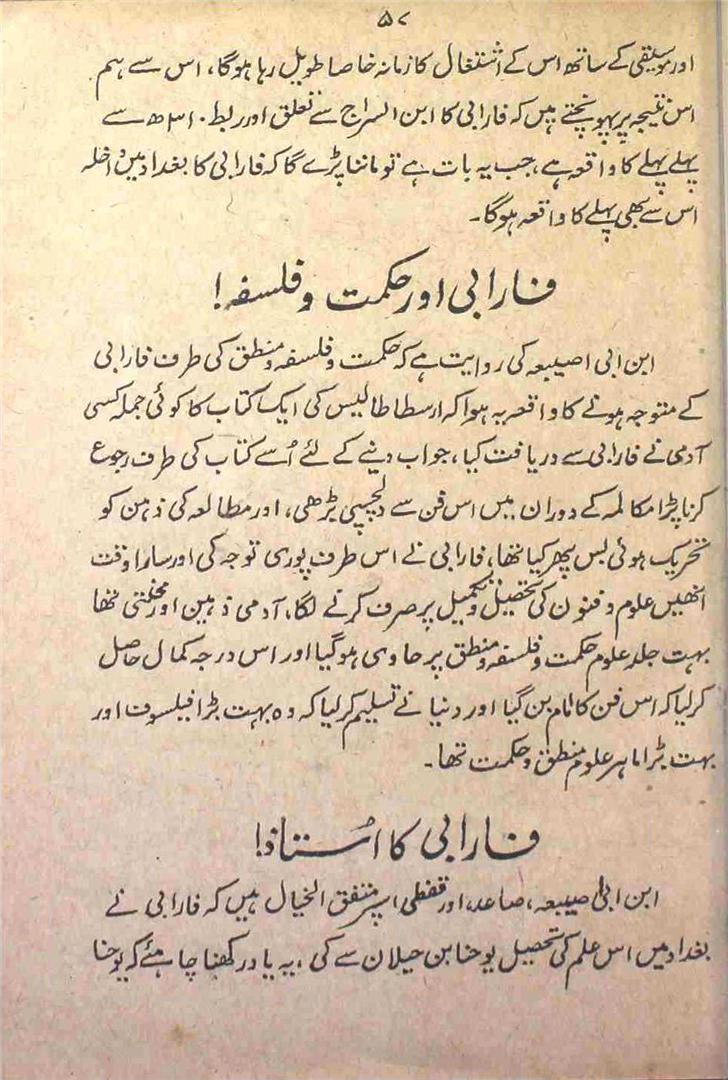 ۵۷
اور موسیقی کے ساتھ اس کے اشتغال کا زمانہ خاصا طویل رہا ہوگا، اس سے ہم
اس نتیجہ پر پہونچتے ہیں کہ فارابی کا ابن السراج سے تعلق اور ربط ۳۱۰ھ سے
پہلے پہلے کا واقعہ ہے، جب یہ بات ہے تو ماننا پڑے گا کہ فارابی کا بغداد میں داخلہ
اس سے بھی پہلے کا واقعہ ہوگا۔
فارابی اور حکمت و فلسفہ!
ابن ابی اصیبعہ کی روایت ہے کہ حکمت و فلسفہ و منطق کی طرف فارابی
کے متوجہ ہونے کا واقعہ یہ ہوا کہ ارسطاطالیس کی ایک کتاب کا کوئی جملہ کسی
آدمی نے فارابی سے دریافت کیا، جواب دینے کے لئے اُسے کتاب کی طرف رجوع
کرنا پڑا مکالمہ کے دوران میں اس فن سے دلچسپی بڑھی، اور مطالعہ کی ذہین کو
تحریک ہوئی بس پھر کیا تھا، فارابی نے اس طرف پوری توجہ کی اور سارا وقت
انھیں علوم و فنون کی تحصیل و تکمیل پر صرف کرنے لگا، آدمی ذہین اور محنتی تھا
بہت جلد علوم حکمت و فلسفہ و منطق پر حاوی ہوگیا اور اس درجہ کمال حاصل
کرلیا کہ اس فن کا امام بن گیا اور دنیا نے تسلیم کرلیا کہ وہ بہت بڑا فیلسوف اور
بہت بڑا ماہر علوم منطق و حکمت تھا۔
فارابی کا اُستاذ!
ابن ابی اصیبعہ، صاعد، اور قفطی اسپر متفق الخیال ہیں کہ فارابی نے
بغداد میں اس علم کی تحصیل یوحنا بن حیلان سے کی، یہ یاد رکھنا چاہئے کہ یوحنا